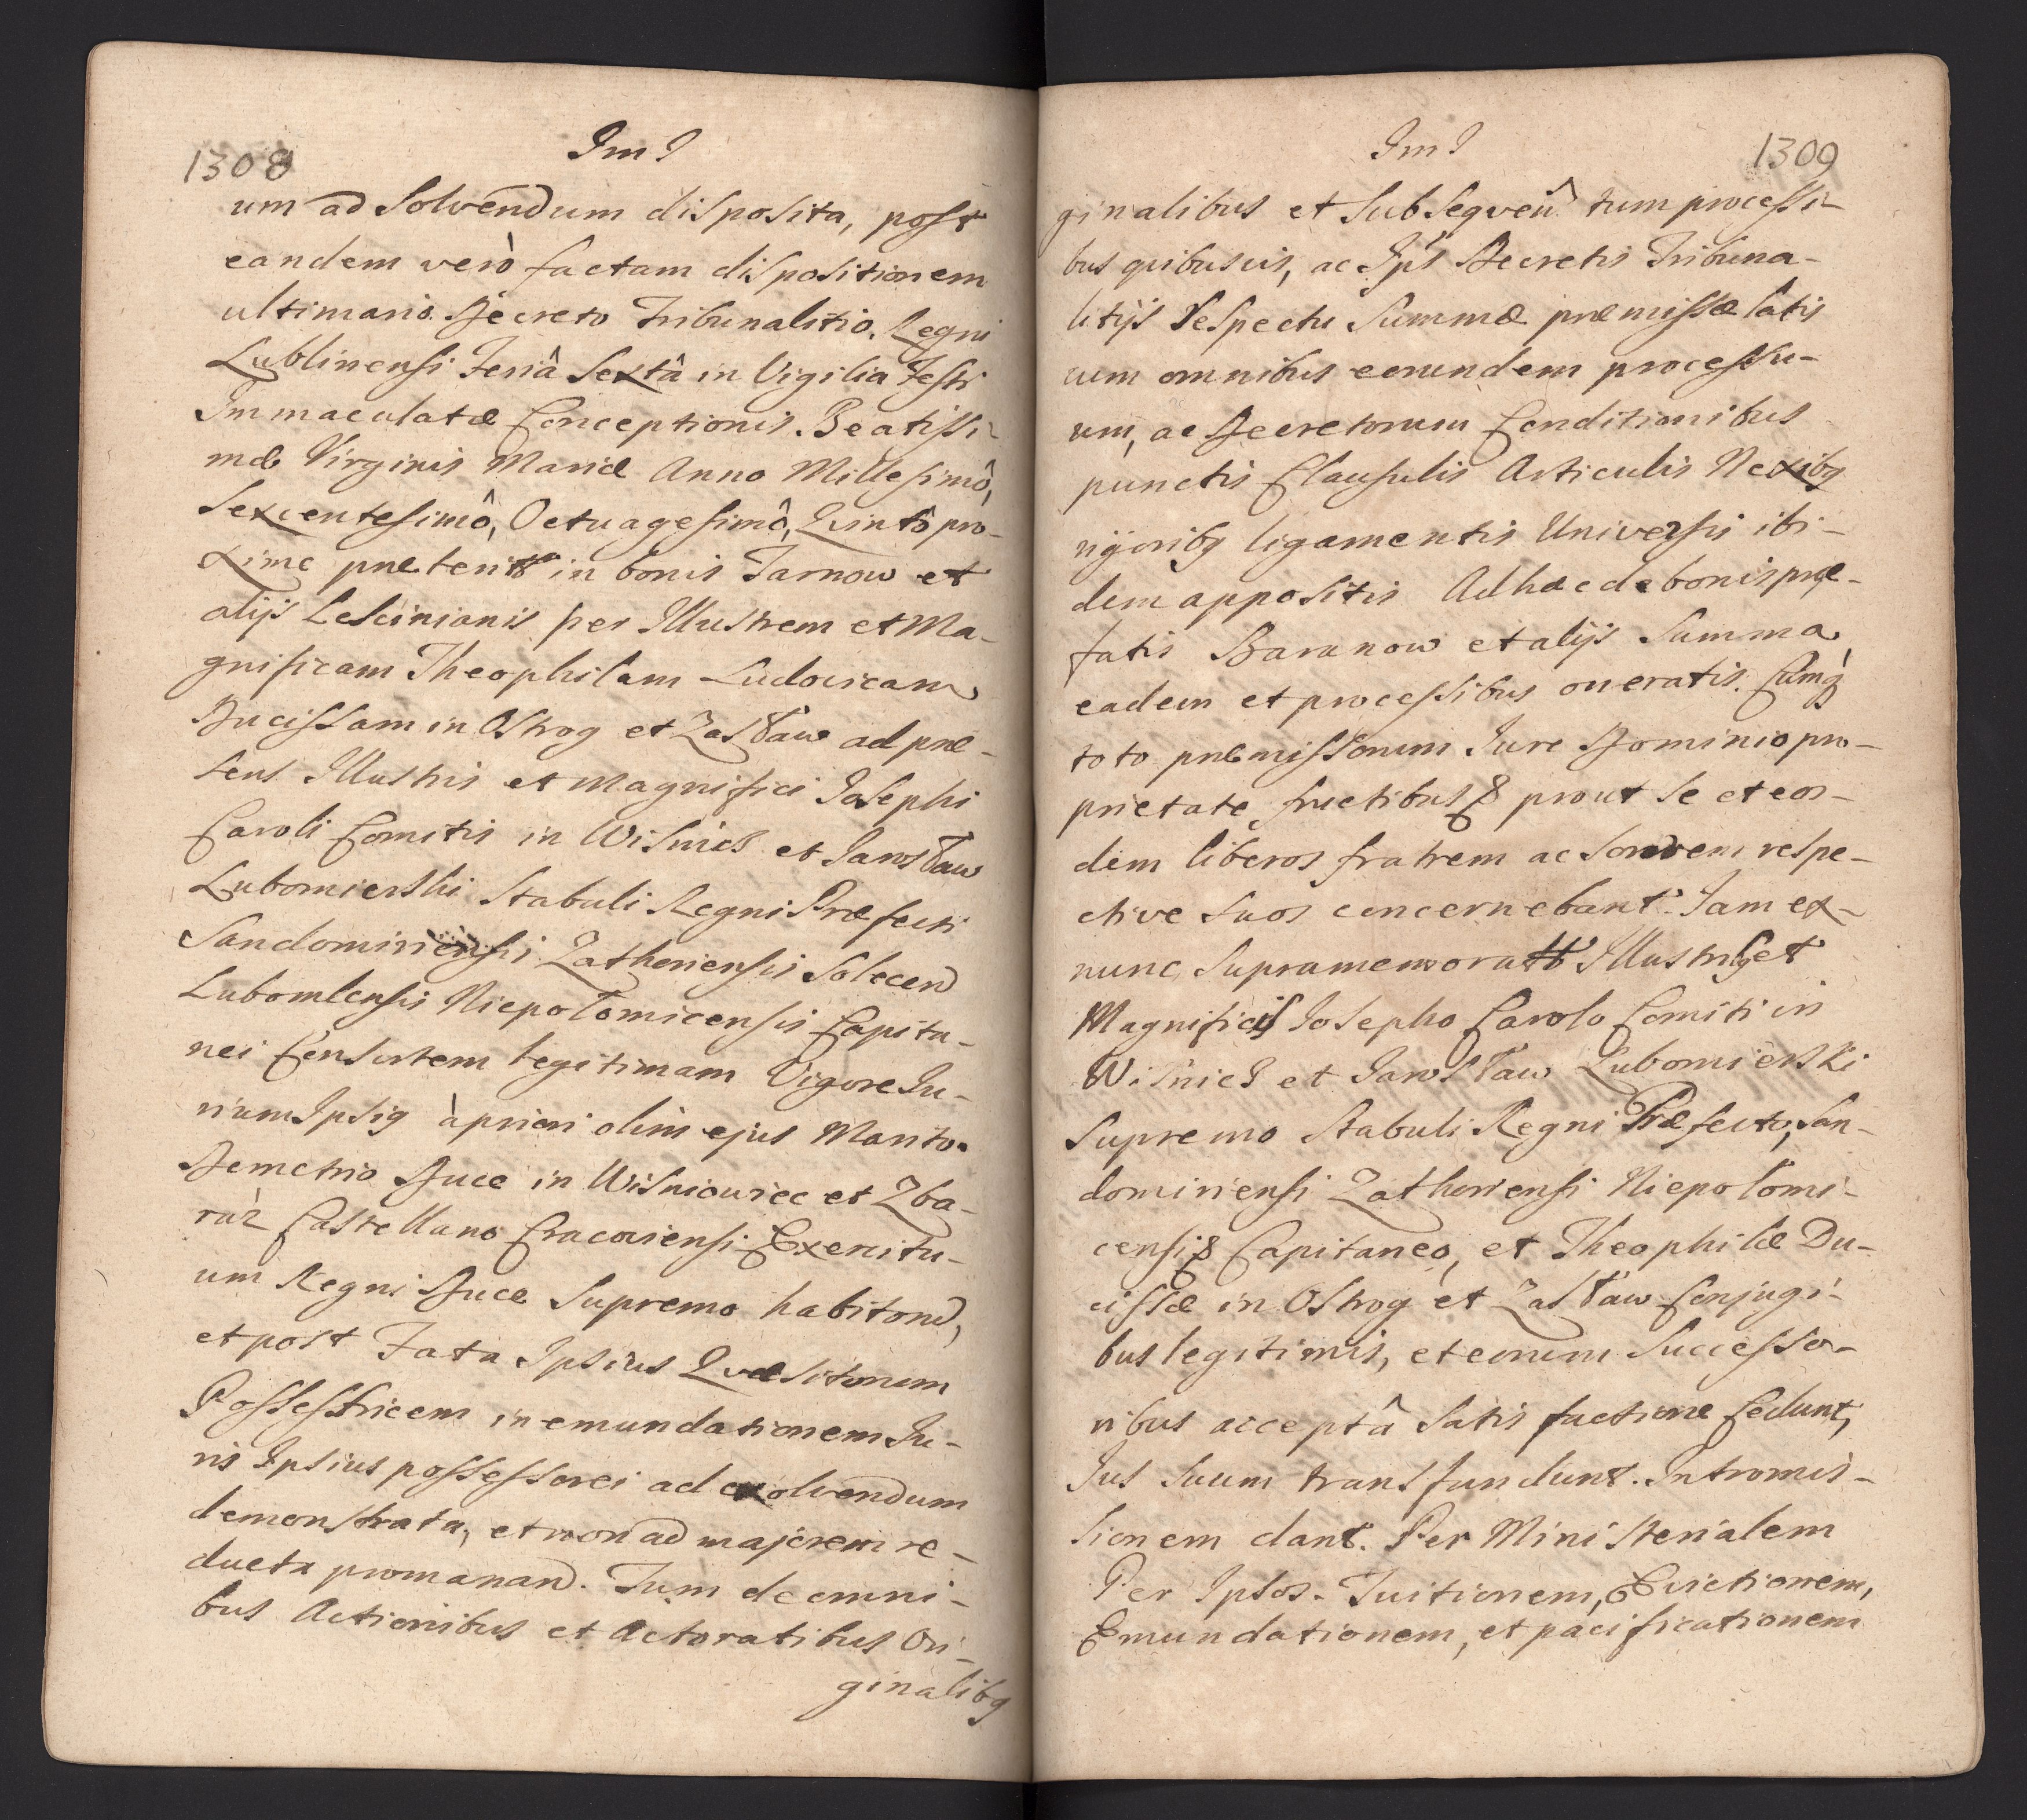 1308
Im I
um ad Solvendum disposita, post
eandem verò factam dispositionem
ultimario Decreto Tribunalitio Regni
Lublinensi Feriâ Sextâ in Vigilia Festi
Immaculatæ Conceptionis Beatissi-
mæ Virginis Mariæ Anno Millesimô,
Sexcentesimô, Octuagesimô, Quintô pro-
xime præteritt in bonis Tarnow et
alijs Lescinianis per Illustrem et Ma-
gnificam Theophilam Ludovicam
Ducissam in Ostrog et Zasław ad præ-
sens Illustris et Magnifici Josephi
Caroli Comitis in Wisnicz et Jarosław
Lubomierski Stabuli Regni Præfecti
Sandomiriensis Zathoriensis Solecen
Lubomlensis Niepołomicensis Capita-
nei Consortem legitimam Vigore Ju-
rium Ipsiq à priori olim ejus Marito
Demetrio Duce in Wisniowiec et Zba-
raż Castellano Cracoviensi Exercitu-
um Regni Duce Supremo habitord,
et post Fata Ipsius Quæsitorum
Possestricem in emundationem Ju-
ris Ipsius possessorei ad exolvendum
demonstrata, et non ad majorem re-
ducta promanand. Tum de omni-
bus Actionibus et Actoratibus Ori-
ginalibq
Im I
1309
ginalibus et Subseqveñ tum processi-
bus quibusvis, ac Ips Decretis Tribuna-
litijs Respectu Summæ præmissæ latis
cum omnibus eorundem processu-
um, ac Decretorum Conditionibus
punctis Clausulis Articulis Nexibq
rigoribq ligamentis Universis ibi-
dem appositis Adhæc de bonis præ-
fatis Baranow et alijs Summa
eadem et processibus oneratis. Cumq
toto præmissorum Jure Dominio pro-
prietate fructibus & prout Se et eos-
dem liberos fratrem ac Sororem respe-
ctive Suos concernebant. Jam ex-
nunc Supramemoratt Illustribq et
Magnificis Josepho Carolo Comiti in
Wisnicz et Jarosław Lubomierski
Supremo Stabuli Regni Præfecto, San-
domiriensi Zathoriensi Niepołomi-
censi & Capitaneo, et Theophilæ Du-
cissæ in Ostrog et Zasław Conjugi-
bus legitimis, et eorum Successo-
ribus acceptâ Satisfactione Cedunt,
Jus Suum transfundunt. Intromis-
sionem dant. Per Ministerialem
Per Ipsos. Tuitionem, Evictionem,
Emundationem, et pacificationem